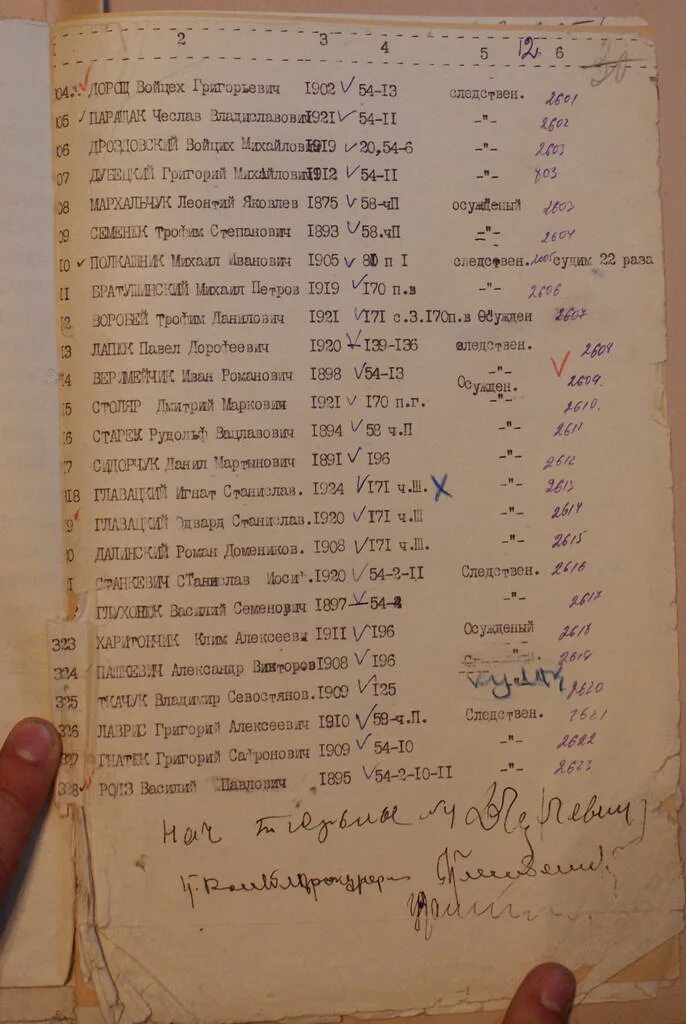 2 3 4 5 12. 6
04. ДОРОЩ Войцех Григорьевич 1902 54-13 следствен. 2601
05 ПАРАЩАК Чеслав Владиславович 1921 54-II -"- 2602
06 ДРОЗДОВСКИЙ Войцих Михайлович 1919 20,54-6 -"- 2603
07 ДУБЕЦКИЙ Григорий Михйлович 1912 54-II -"- 803
08 МАРХАЛЬЧУК Леонтий Яковлев 1875 58-чП осужденый 2603
09 СЕМЕНЕК Трофим Степанович 1893 58.чП -"- 2604
10 ПОЛКАШНИК Михаил Иванович 1905 80 п I следствен. 2605 судим 22 раза
II БРАТУШИНСКИЙ Михаил Петров 1919 170 п.в -"- 2606
12 ВОРОБЕЙ Трофим Данилович 1921 171 с.З.170п.в Осужден 2607
13 ЛАПЕК Павел Дорофеевич 1920 139-136 следствен. 2608
14 ВЕРИМЕЙЧИК Иван Романович 1898 54-13 -"- 2609.
15 СТОЛЯР Дмитрий Маркович 1921 170 п.г. Осужден. -"- 2610.
16 СТАРЕК Рудольф Вацлавович 1894 58 ч.П -"- 2611
17 СИДОРЧУК Данил Мартынович 1891 196 -"- 2612
318 ГЛАВАЦКИЙ Игнат Станислав. 1924 171 ч.Ш. -"- 2613
19 ГЛАВАЦКИЙ Эдвард Станислав. 1920 171 ч.Ш -"- 2614
0 ДАЛИНСКИЙ Роман Домеников. 1908 171 ч.Ш. -"- 2615
I СТАНКЕВИЧ Станислав Иоси. 1920 54-2-II Следствен. 2616
ГЛУХОНЕК Василий Семенович 1897 54-2 -"- 2617
323 ХАРИТОНЧИК Клим Алексееви 1911 196 Осужденый 2618
324 ПАШКЕВИЧ Александр Викторов 1908 196 2619
325 ТКАЧУК Владимир Севостянов. 1909 125 2620
326 ЛАВРИС Григорий Алексеевич 1910 58-ч.П. Следствен. 2621
327 ГНАТЕК Григорий Сафронович 1909 54-10 -"- 2622
328 РОИЗ Василий Павлович 1895 54-2-10-II -"- 2623
Нач тюрьмы